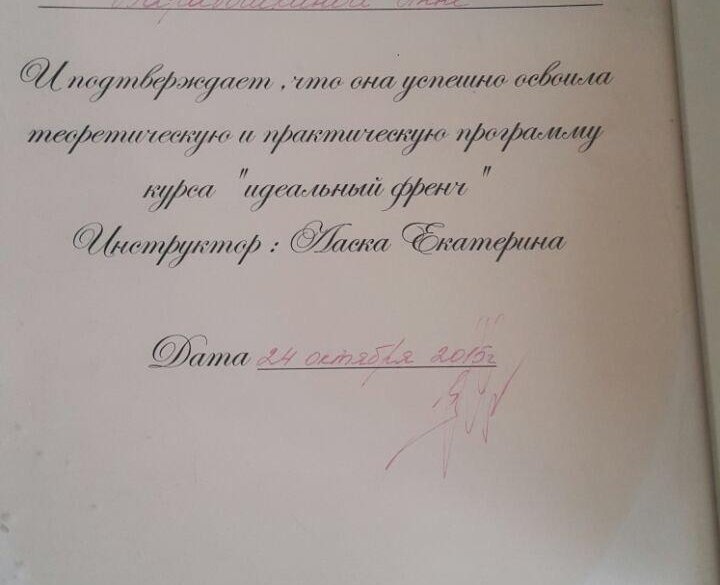 И подтверждает , что она успешно освоила
теоретическую и практическую программу
курса "идеальный френч"
Инструктор : Ласка Екатерина
Дата 24 октября 2015г